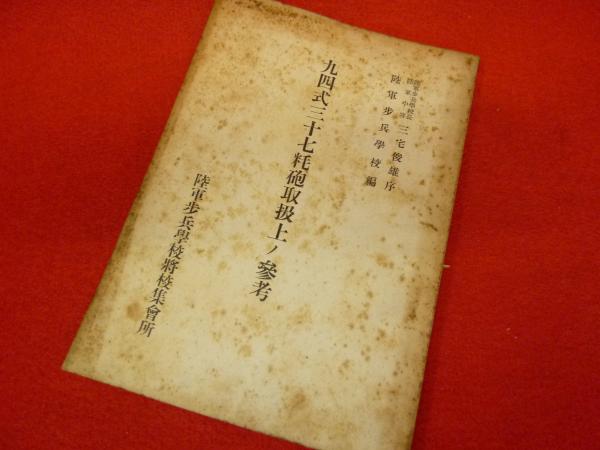 陸軍歩兵學校長
陸軍中將 三宅俊雄序
陸軍歩兵學校編
九四式三十七粍砲取扱上ノ參考
陸軍歩兵學校將校集會所